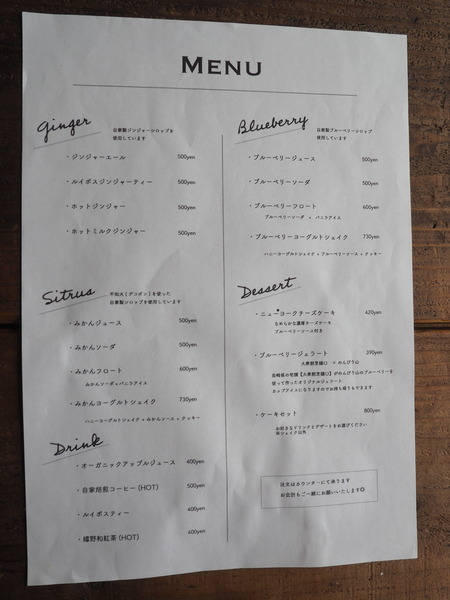 MENU
Ginger
自家製ジンジャーシロップを
使用しています
・ジンジャーエール 500yen
・ルイボスジンジャーティー 500yen
・ホットジンジャー 500yen
・ホットミルクジンジャー 500yen
Sitrus
不知火(デコポン)を使った
自家製シロップを使用しています
・みかんジュース 500yen
・みかんソーダ 500yen
・みかんフロート 600yen
みかんソーダ+バニラアイス
・みかんヨーグルトシェイク 730yen
ハニーヨーグルトシェイク+みかんソース+クッキー
Drink
・オーガニックアップルジュース 400yen
・自家焙煎コーヒー(HOT) 500yen
・ルイボスティー 400yen
・嬉野和紅茶(HOT) 400yen
Blueberry
自家製ブルーベリーシロップ
使用しています
・ブルーベリージュース 500yen
・ブルーベリーソーダ 500yen
・ブルーベリーフロート 600yen
ブルーベリーソーダ + バニラアイス
・ブルーベリーヨーグルトシェイク 730yen
ハニーヨーグルトシェイク+ブルーベリーソース+クッキー
Dessert
・ニューヨークチーズケーキ 420yen
なめらかな濃厚チーズケーキ
ブルーベリーソース付き
・ブルーベリージェラート 390yen
× のんびり山
のんびり山のブルーベリーを
使って作ったオリジナルジェラート
カップアイスになりますのでお持ち帰りもできます
・ケーキセット 800yen
お好きなドリンクとデザートをお選びください
※シェイク以外
注文はカウンターにて承ります
お会計もご一緒にお願いいたします